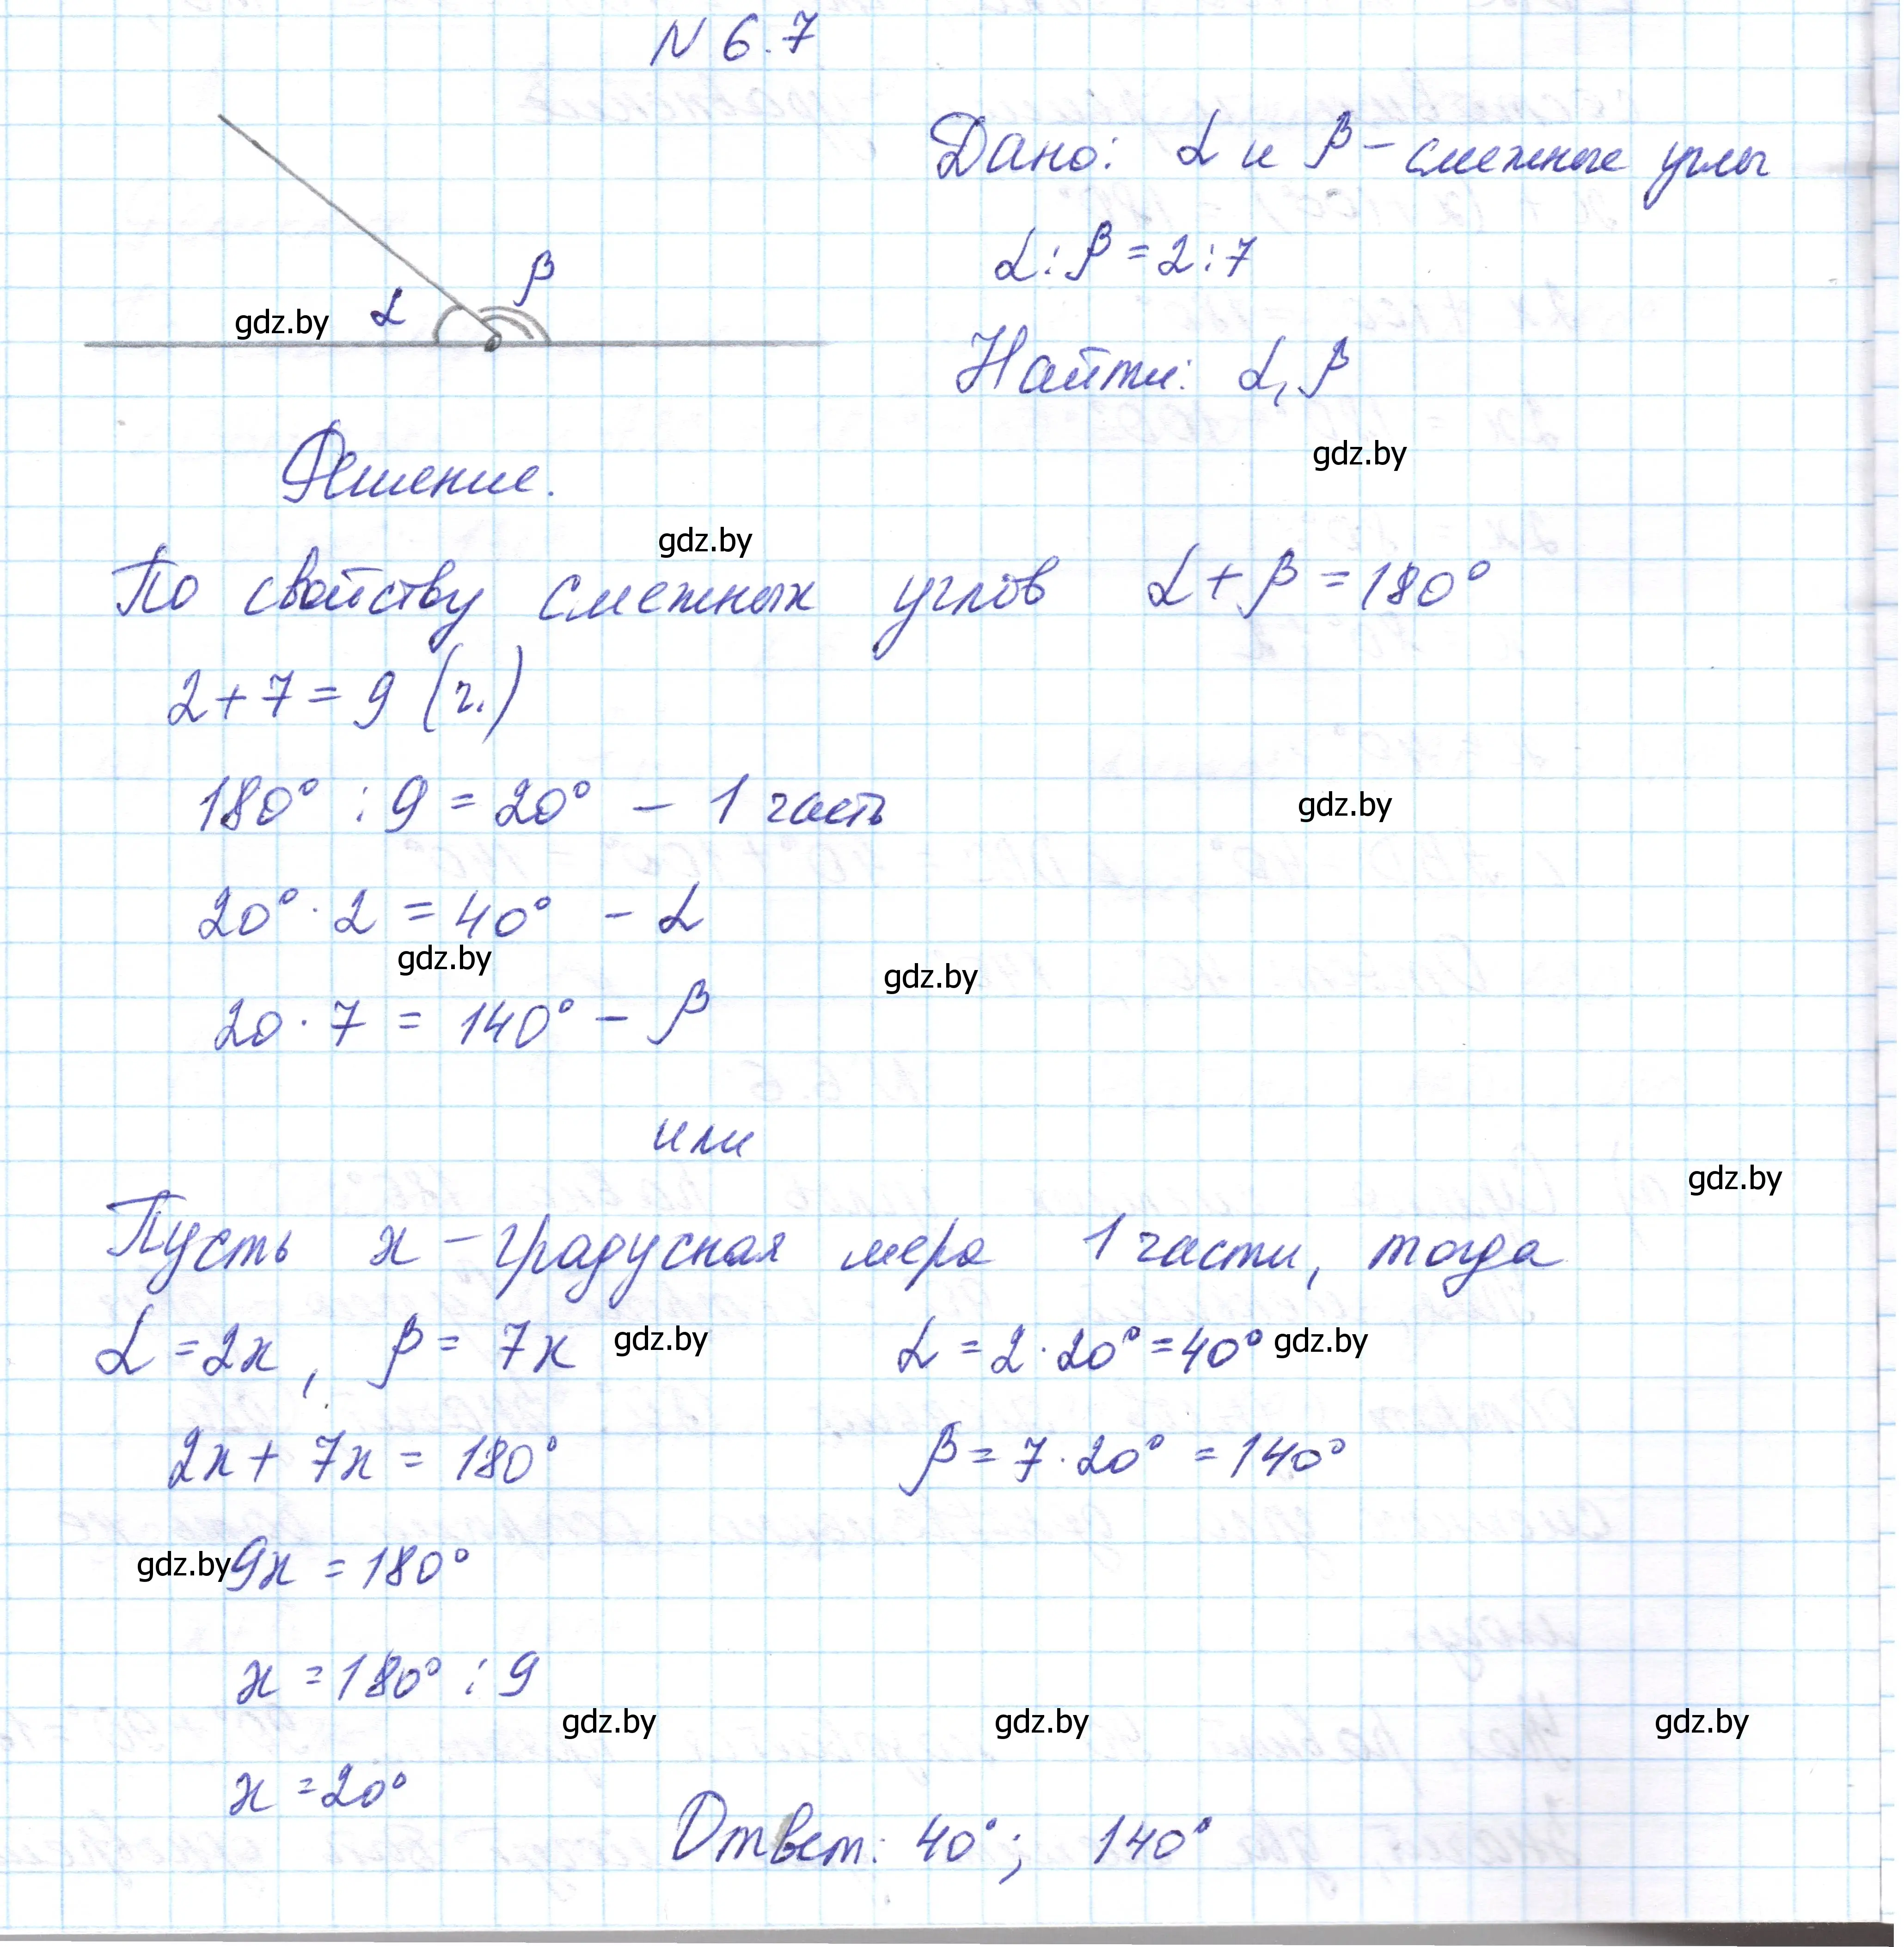 N 6.7
Дано: α и β - смежные углы
α : β = 2 : 7
β
α
gdz.by
Найти: α, β
gdz.by
Решение.
gdz.by
По свойству смежных углов α + β = 180°
2 + 7 = 9 (ч.)
180° : 9 = 20° - 1 часть
gdz.by
20° · 2 = 40° - α
gdz.by
gdz.by
20 · 7 = 140° - β
или
gdz.by
Пусть x - градусная мера 1 части, тогда
α = 2x, β = 7x gdz.by α = 2 · 20° = 40° gdz.by
2x + 7x = 180° β = 7 · 20° = 140°
gdz.by 9x = 180°
x = 180° : 9
gdz.by gdz.by gdz.by
x = 20°
Ответ: 40°; 140°